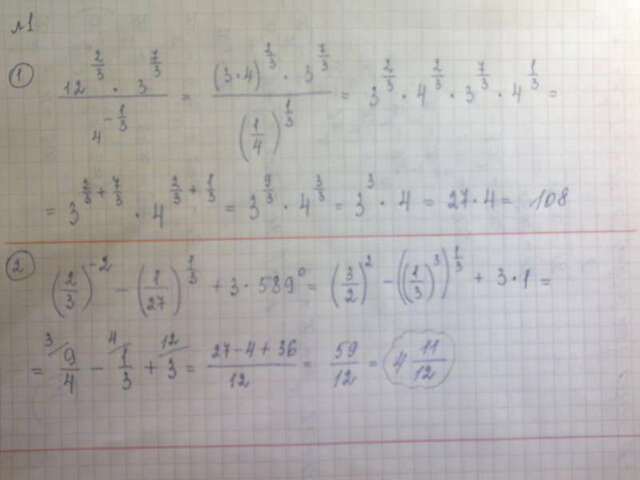 №1
① 12^(2/3) · 3^(7/3) / 4^(-1/3) = (3·4)^(2/3) · 3^(7/3) / (1/4)^(1/3) = 3^(2/3) · 4^(2/3) · 3^(7/3) · 4^(1/3) =
= 3^(2/3 + 7/3) · 4^(2/3 + 1/3) = 3^(9/3) · 4^(3/3) = 3^3 · 4 = 27·4 = 108
② (2/3)^(-2) - (1/27)^(1/3) + 3·589^0 = (3/2)^2 - ((1/3)^3)^(1/3) + 3·1 =
= 3/ 9/4 - 4/ 1/3 + 12/ 3 = 27-4+36 / 12 = 59/12 = 4 11/12